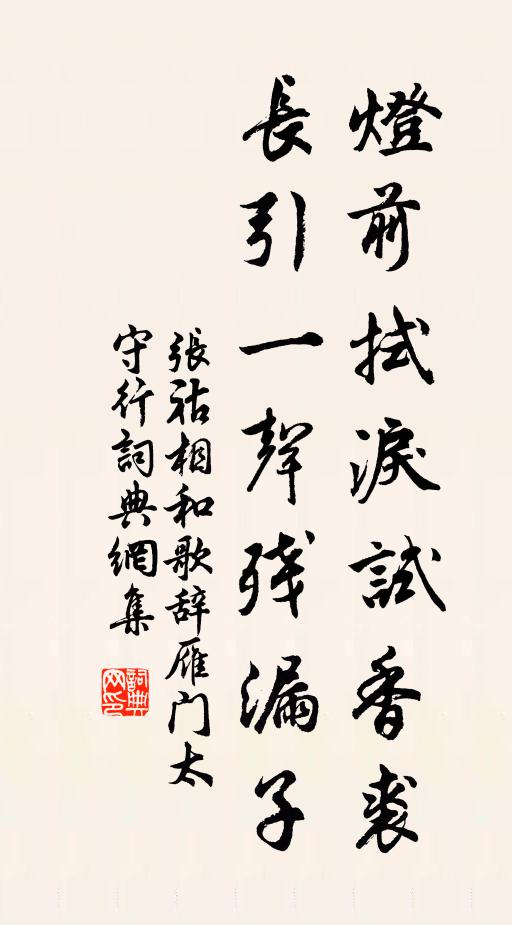 燈前拭淚試香裘
長引一聲残漏子
張祜相和歌辞雁门太
守行詞典網集
詞典网印